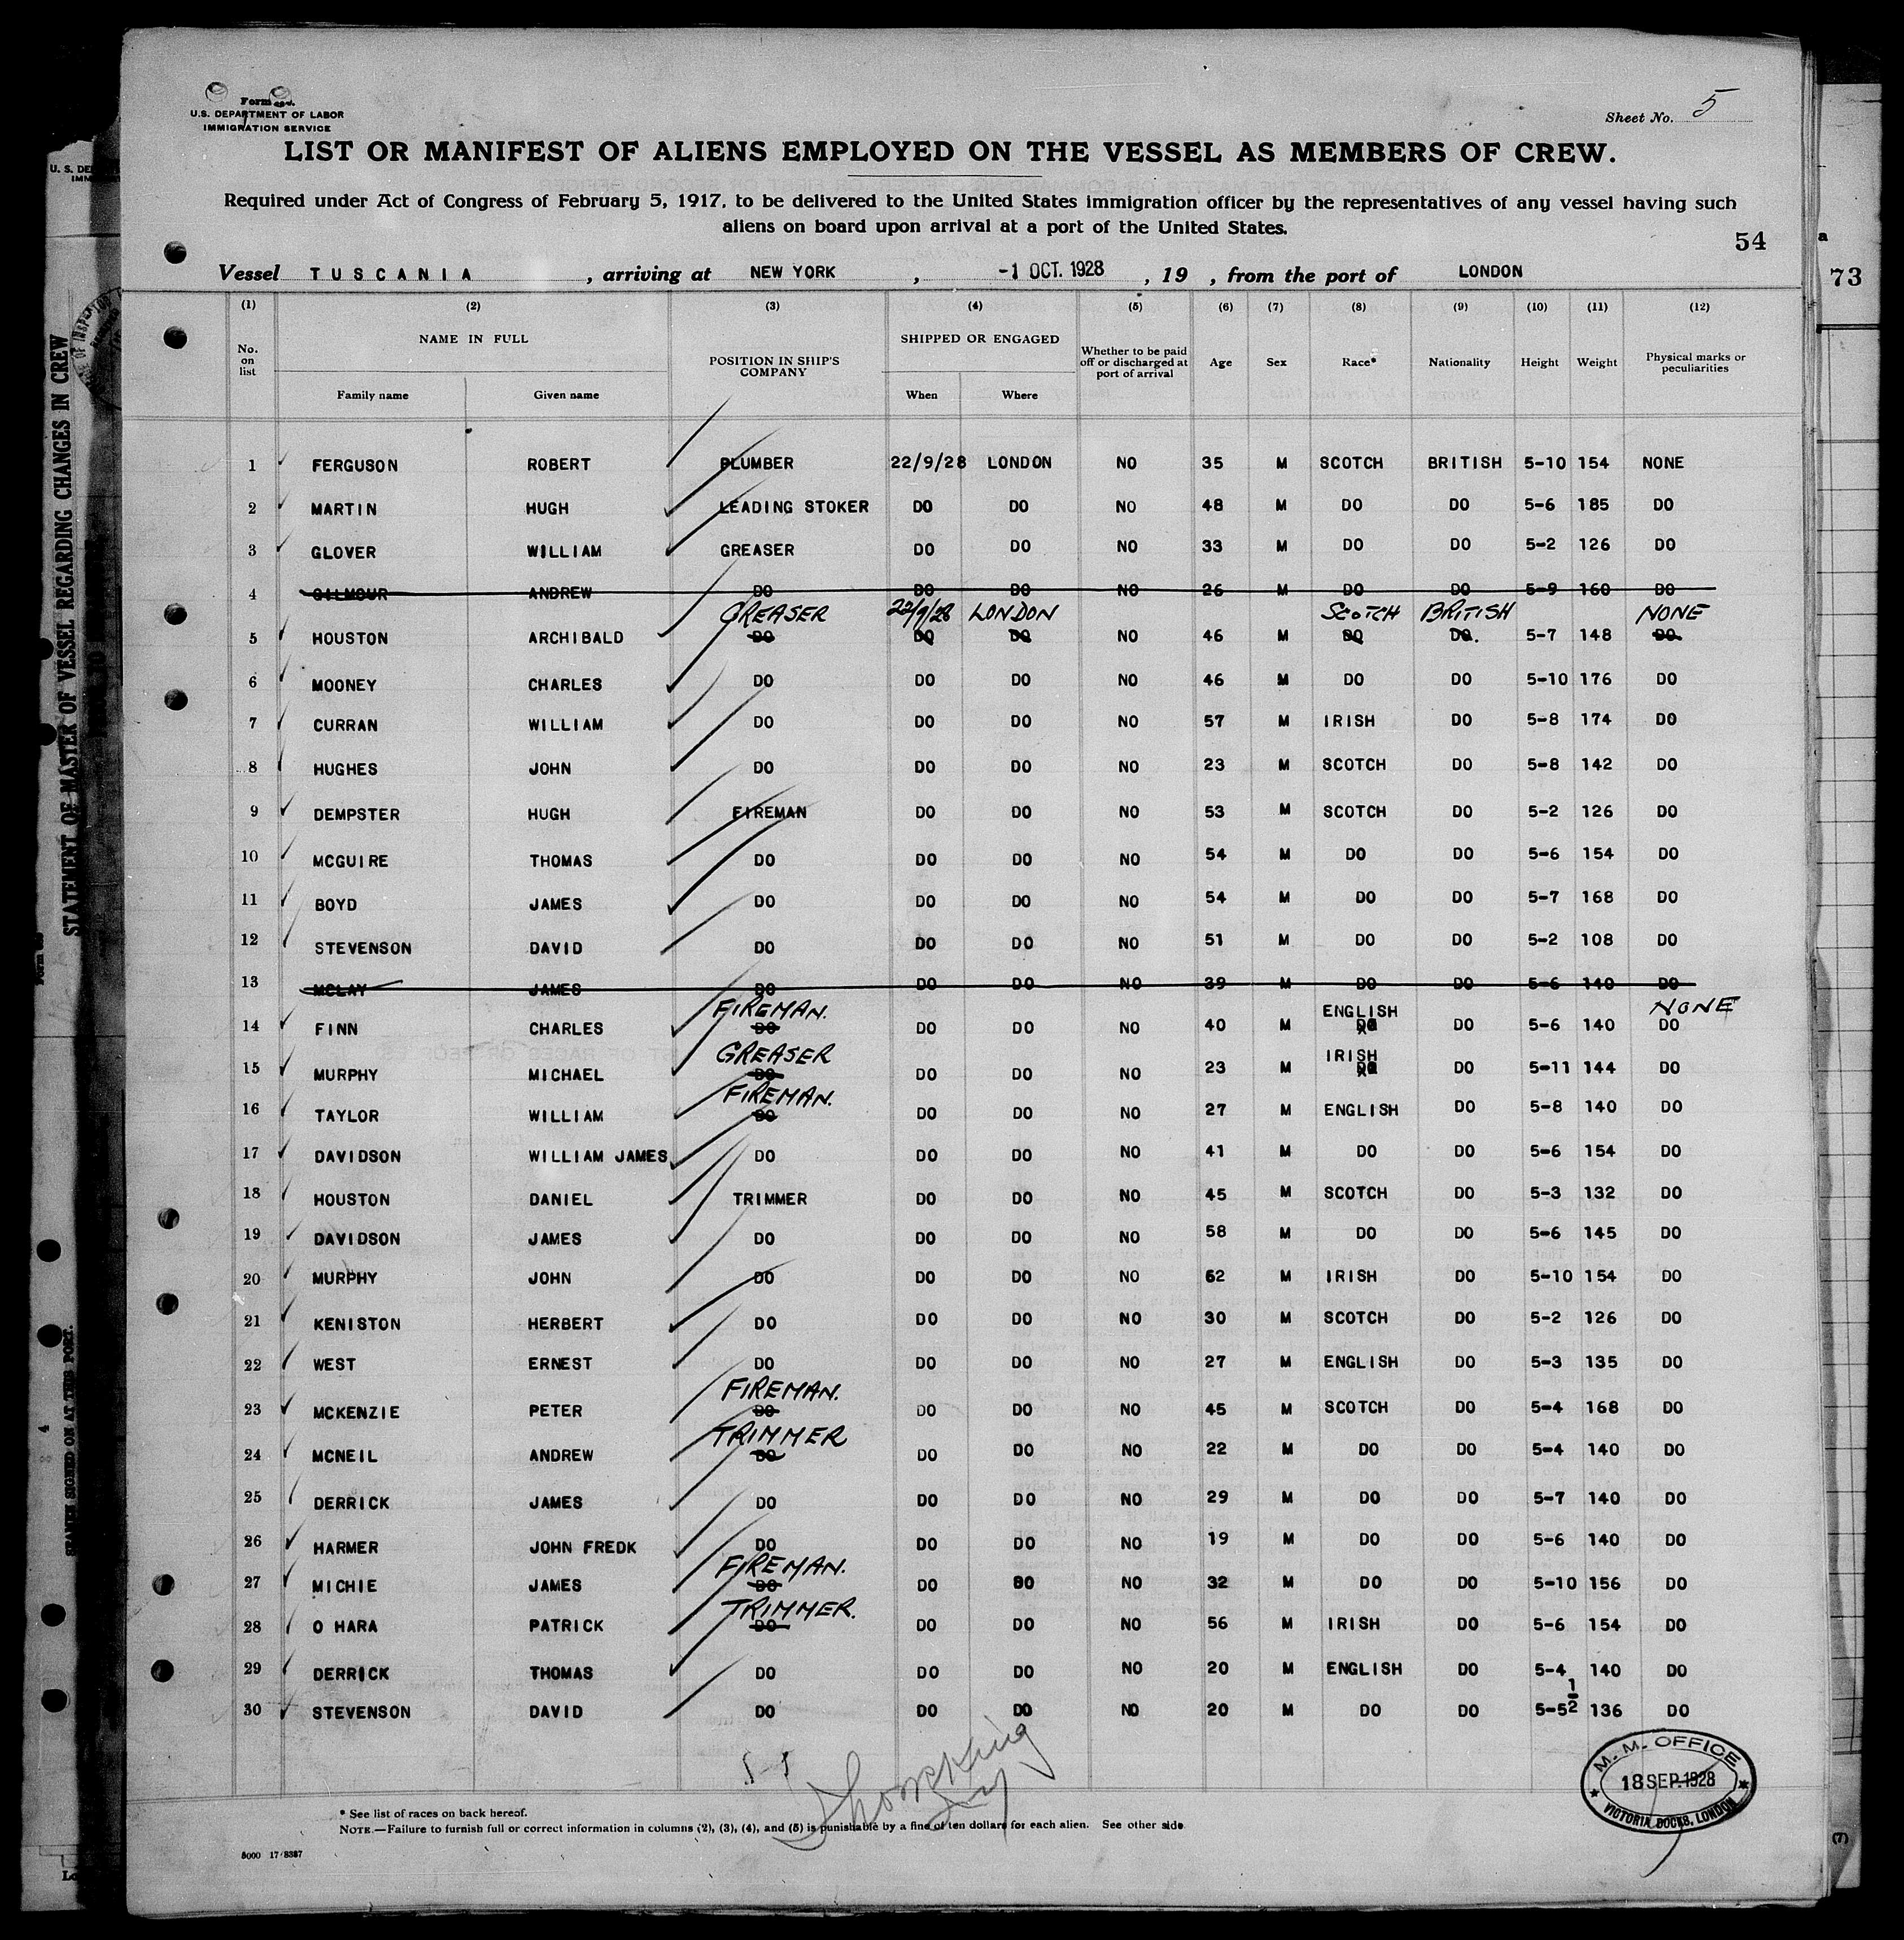 Form
U.S. DEPARTMENT OF LABOR
IMMIGRATION SERVICE
Sheet No. 5
LIST OR MANIFEST OF ALIENS EMPLOYED ON THE VESSEL AS MEMBERS OF CREW.
Required under Act of Congress of February 5, 1917, to be delivered to the United States immigration officer by the representatives of any vessel having such
aliens on board upon arrival at a port of the United States.
54
73
Vessel TUSCANIA, arriving at NEW YORK, -1 OCT. 1928, 19 , from the port of LONDON
(1) (2) (3) (4) (5) (6) (7) (8) (9) (10) (11) (12)
No. on list NAME IN FULL POSITION IN SHIP'S COMPANY SHIPPED OR ENGAGED Whether to be paid off or discharged at port of arrival Age Sex Race* Nationality Height Weight Physical marks or peculiarities
Family name Given name When Where
1 FERGUSON ROBERT PLUMBER 22/9/28 LONDON NO 35 M SCOTCH BRITISH 5-10 154 NONE
2 MARTIN HUGH LEADING STOKER DO DO NO 48 M DO DO 5-6 185 DO
3 GLOVER WILLIAM GREASER DO DO NO 33 M DO DO 5-2 126 DO
4 GILMOUR ANDREW DO DO DO NO 26 M DO DO 5-9 160 DO
GREASER 22/9/28 LONDON SCOTCH BRITISH NONE
5 HOUSTON ARCHIBALD DO DO DO NO 46 M DO DO. 5-7 148 DO.
6 MOONEY CHARLES DO DO DO NO 46 M DO DO 5-10 176 DO
7 CURRAN WILLIAM DO DO DO NO 57 M IRISH DO 5-8 174 DO
8 HUGHES JOHN DO DO DO NO 23 M SCOTCH DO 5-8 142 DO
9 DEMPSTER HUGH FIREMAN DO DO NO 53 M SCOTCH DO 5-2 126 DO
10 MCGUIRE THOMAS DO DO DO NO 54 M DO DO 5-6 154 DO
11 BOYD JAMES DO DO DO NO 54 M DO DO 5-7 168 DO
12 STEVENSON DAVID DO DO DO NO 51 M DO DO 5-2 108 DO
13 MCLAY JAMES DO DO DO NO 39 M DO DO 5-6 140 DO
FIREMAN. ENGLISH NONE
14 FINN CHARLES DO DO DO NO 40 M DO DO 5-6 140 DO
GREASER IRISH
15 MURPHY MICHAEL DO DO DO NO 23 M DO DO 5-11 144 DO
FIREMAN.
16 TAYLOR WILLIAM DO DO DO NO 27 M ENGLISH DO 5-8 140 DO
17 DAVIDSON WILLIAM JAMES DO DO DO NO 41 M DO DO 5-6 154 DO
18 HOUSTON DANIEL TRIMMER DO DO NO 45 M SCOTCH DO 5-3 132 DO
19 DAVIDSON JAMES DO DO DO NO 58 M DO DO 5-6 145 DO
20 MURPHY JOHN DO DO DO NO 62 M IRISH DO 5-10 154 DO
21 KENISTON HERBERT DO DO DO NO 30 M SCOTCH DO 5-2 126 DO
22 WEST ERNEST DO DO DO NO 27 M ENGLISH DO 5-3 135 DO
FIREMAN.
23 MCKENZIE PETER DO DO DO NO 45 M SCOTCH DO 5-4 168 DO
TRIMMER
24 MCNEIL ANDREW DO DO DO NO 22 M DO DO 5-4 140 DO
25 DERRICK JAMES DO DO DO NO 29 M DO DO 5-7 140 DO
26 HARMER JOHN FREDK DO DO DO NO 19 M DO DO 5-6 140 DO
FIREMAN.
27 MICHIE JAMES DO DO DO NO 32 M DO DO 5-10 156 DO
TRIMMER.
28 O HARA PATRICK DO DO DO NO 56 M IRISH DO 5-6 154 DO
29 DERRICK THOMAS DO DO DO NO 20 M ENGLISH DO 5-4 140 DO
30 STEVENSON DAVID DO DO DO NO 20 M DO DO 5-5½ 136 DO
M. M. OFFICE
18 SEP. 1928
VICTORIA DOCKS, LONDON
* See list of races on back hereof.
NOTE.—Failure to furnish full or correct information in columns (2), (3), (4), and (5) is punishable by a fine of ten dollars for each alien. See other side.
STATEMENT OF MASTER OF VESSEL REGARDING CHANGES IN CREW
SEAMEN SIGNED ON AT THIS PORT.